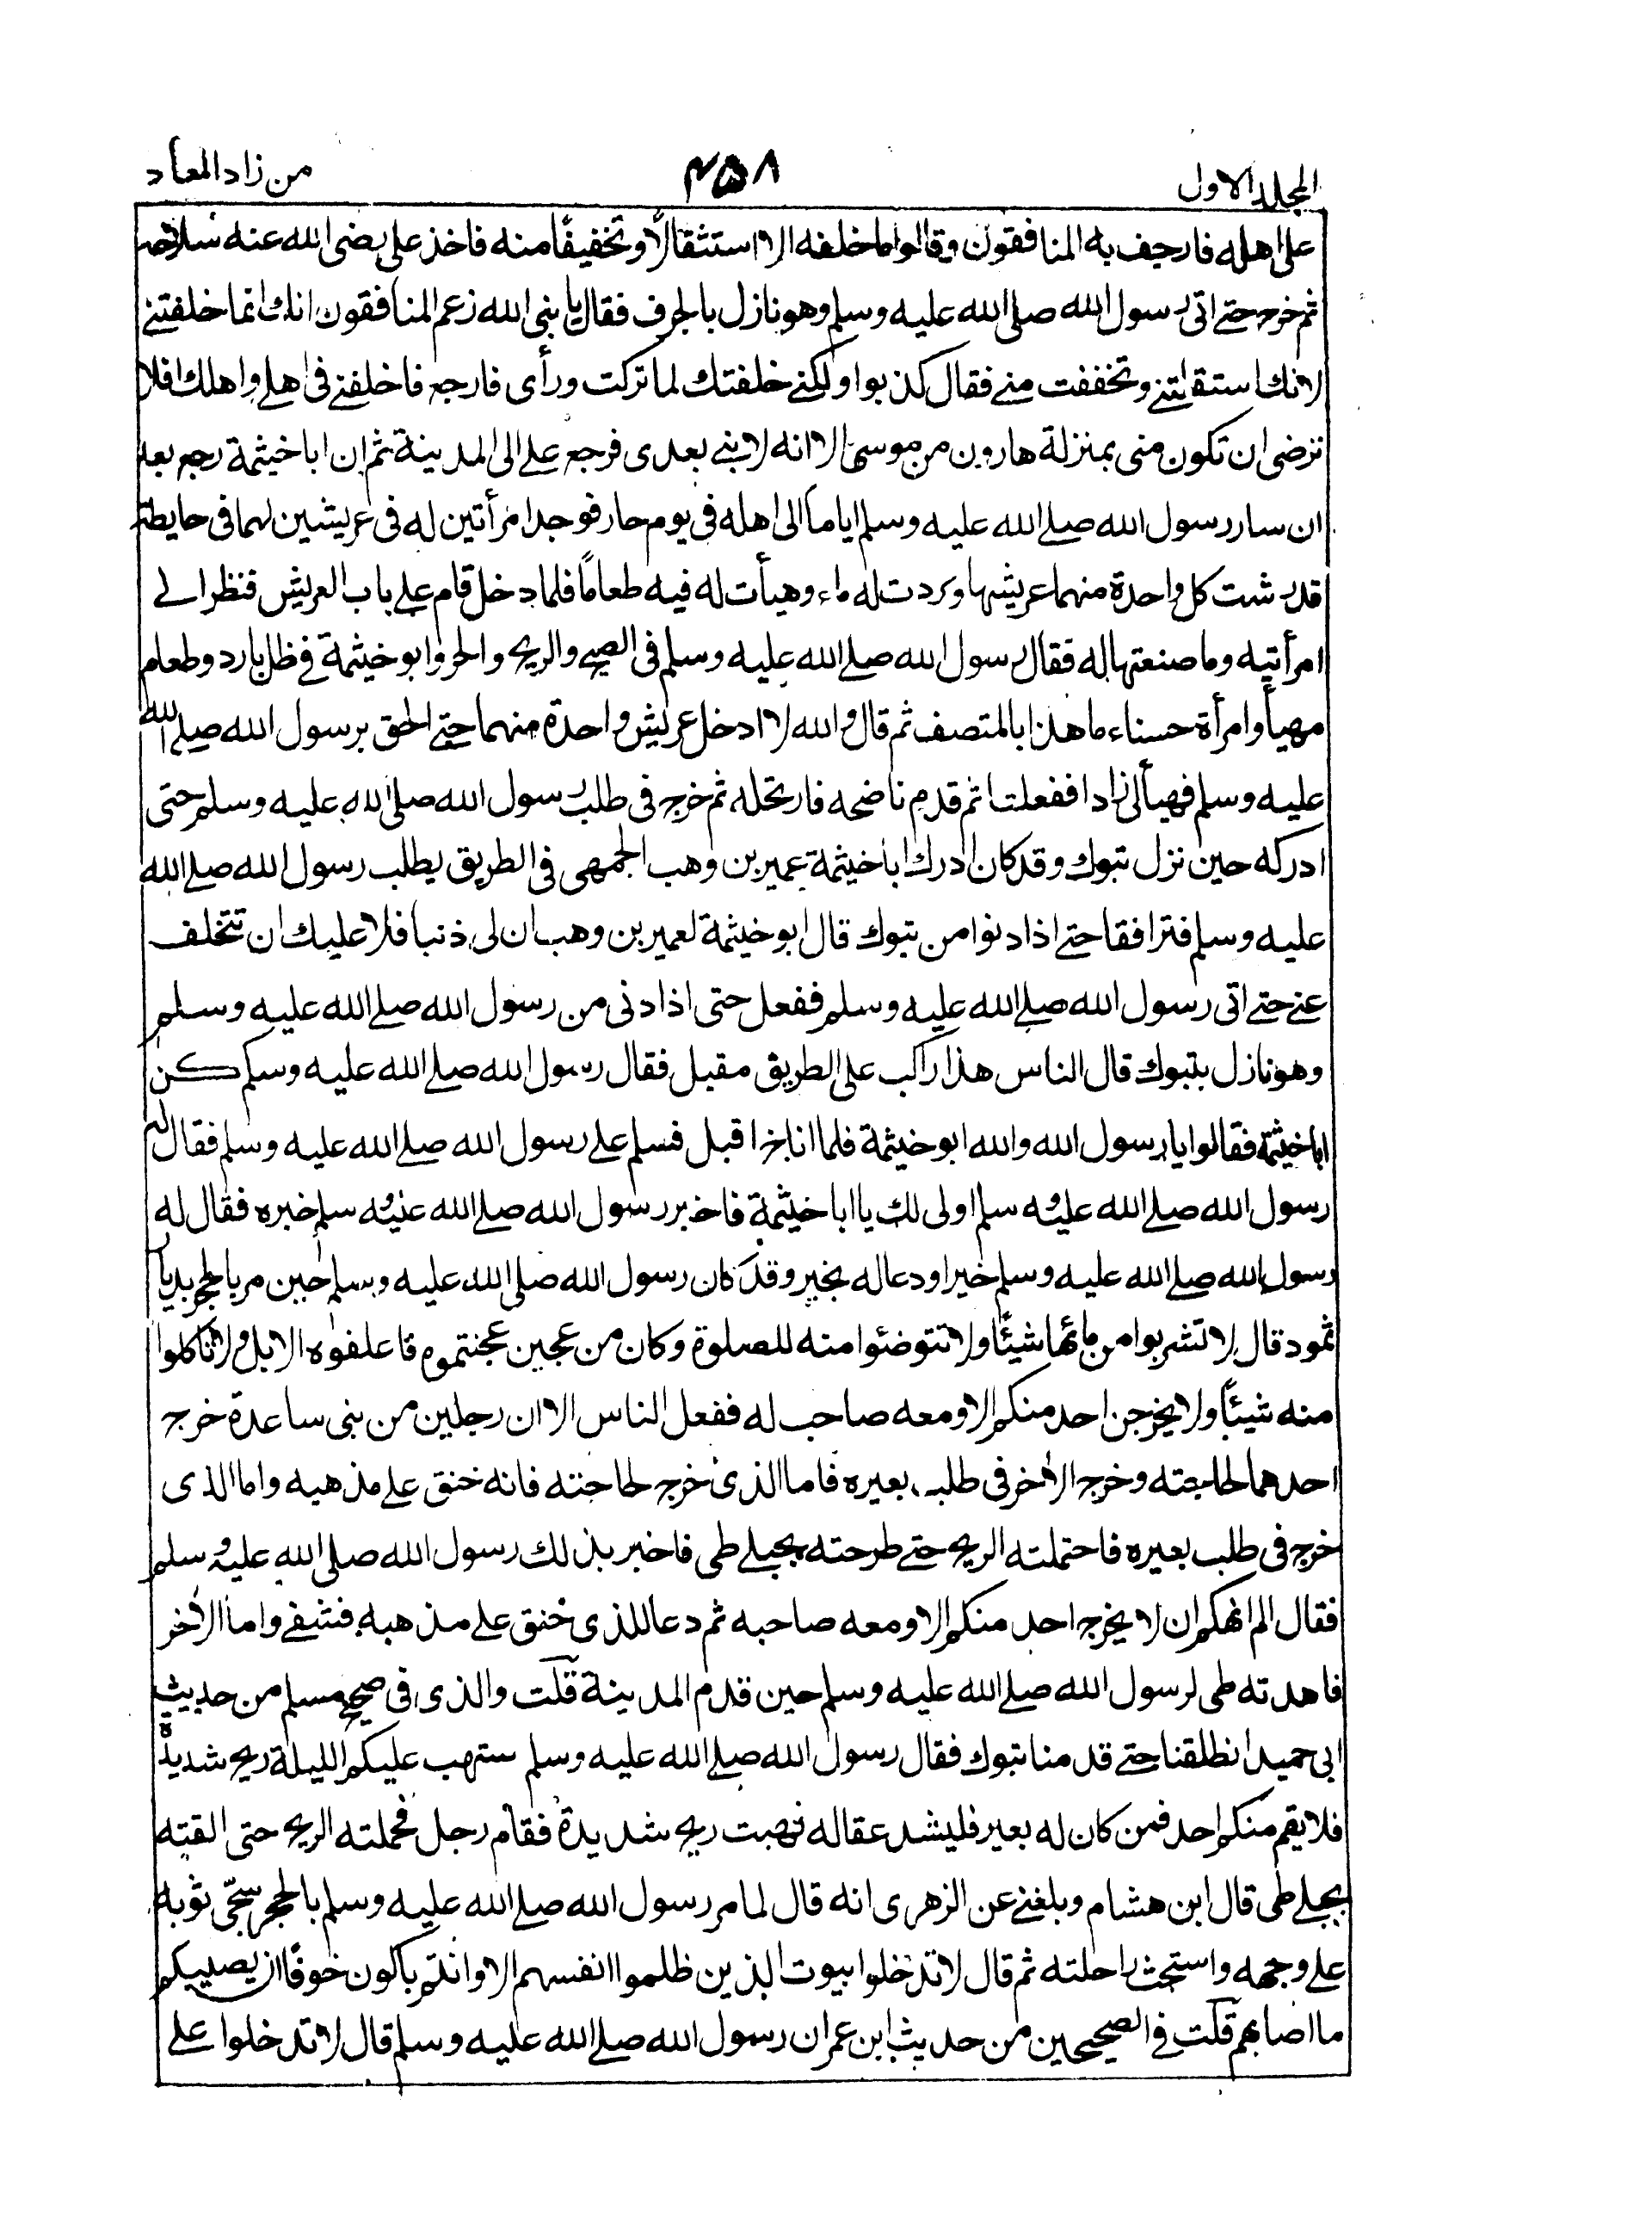 المجلد الاول
۴۵۸
من زاد المعاد
على اهله فارجف به المنافقون وقالوا ما خلفه الا استثقالًا وتخفيفًا منه فاخذ على رضى الله عنه سلاحه
ثم خرج حتے اتى رسول الله صلى الله عليه وسلم وهو نازل بالجرف فقال يا نبى الله زعم المنافقون انك انما خلفتنے
لانك استثقلتنے وتخففت منے فقال كذبوا ولكنے خلفتك لما تركت ورأى فارجع فاخلفنے فى اهلے واهلك افلا
ترضى ان تكون منى بمنزلة هارون من موسى الا انه لا نبے بعدى فرجع على الى المدينة ثم ان ابا خيثمة رجع بعد
ان سار رسول الله صلے الله عليه وسلم اياما الى اهله فى يوم حار فوجد امرأتين له فى عريشين لهما فى حايطه
قد رشت كل واحدة منهما عريشها وبردت له ماء وهيأت له فيه طعامًا فلما دخل قام علے باب العريش فنظر الے
امرأتيه وما صنعتا له فقال رسول الله صلے الله عليه وسلم فى الضح والريح والحر وابو خيثمة فے ظل بارد وطعام
مهيأ وامرأة حسناء ما هذا بالمتصف ثم قال والله لا ادخل عريش واحدة منهما حتے الحق برسول الله صلے الله
عليه وسلم فهيأ لى زادا ففعلتا ثم قدم ناضحه فارتحله ثم خرج فى طلب رسول الله صلى الله عليه وسلم حتى
ادركه حين نزل تبوك وقد كان ادرك ابا خيثمة عمير بن وهب الجمهى فى الطريق يطلب رسول الله صلے الله
عليه وسلم فترافقا حتے اذا دنوا من تبوك قال ابو خيثمة لعمير بن وهب ان لى ذنبا فلا عليك ان تتخلف
عنے حتے اتى رسول الله صلے الله عليه وسلم ففعل حتى اذا دنى من رسول الله صلے الله عليه وسلم
وهو نازل بتبوك قال الناس هذا راكب على الطريق مقبل فقال رسول الله صلے الله عليه وسلم كن
ابا خيثمة فقالوا يا رسول الله والله ابو خيثمة فلما اناخ اقبل فسلم على رسول الله صلے الله عليه وسلم فقال له
رسول الله صلے الله عليه وسلم اولى لك يا ابا خيثمة فاخبر رسول الله صلے الله عليه وسلم خبره فقال له
رسول الله صلے الله عليه وسلم خيرا ودعا له بخير وقد كان رسول الله صلى الله عليه وسلم حين مر بالحجر بديار
ثمود قال لا تشربوا من مائها شيئًا ولا تتوضئوا منه للصلوة وكان من عجين عجنتموه فاعلفوه الابل ولا تاكلوا
منه شيئًا ولا يخرجن احد منكم الا ومعه صاحب له ففعل الناس الا ان رجلين من بنى ساعدة خرج
احدهما لحاجته وخرج الأخر فى طلب بعيره فاما الذى خرج لحاجته فانه خنق على مذهبه واما الذى
خرج فى طلب بعيره فاحتملته الريح حتے طرحته بجبلے طى فاخبر بذلك رسول الله صلى الله عليه وسلم
فقال الم انهكم ان لا يخرج احد منكم الا ومعه صاحبه ثم دعا للذى خنق على مذهبه فشفے واما الأخر
فاهدته طى لرسول الله صلے الله عليه وسلم حين قدم المدينة قلت والذى فى صحيح مسلم من حديث
ابى حميد انطلقنا حتے قدمنا تبوك فقال رسول الله صلے الله عليه وسلم ستهب عليكم الليلة ريح شديدة
فلا يقم منكم احد فمن كان له بعير فليشد عقاله فهبت ريح شديدة فقام رجل فحملته الريح حتى القته
بجبلے طى قال ابن هشام وبلغنے عن الزهرى انه قال لما مر رسول الله صلے الله عليه وسلم بالحجر سجّى ثوبه
على وجهه واستحث راحلته ثم قال لا تدخلوا بيوت الذين ظلموا انفسهم الا وانتم باكون خوفًا ان يصيبكم
ما اصابهم قلت فے الصحيحين من حديث ابن عمر ان رسول الله صلے الله عليه وسلم قال لا تدخلوا علے